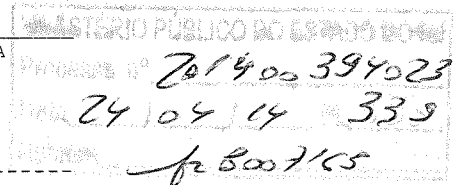 A
MINISTÉRIO PÚBLICO DO ESTADO DO
Processo nº 201400394023
Data 24 / 04 / 14 339